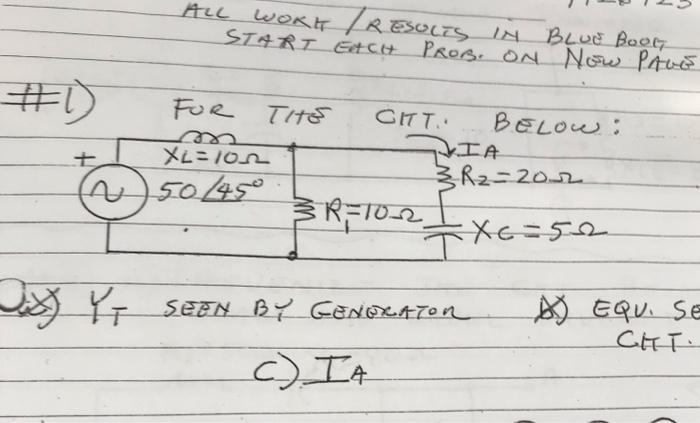 ALL WORK / RESULTS IN BLUE BOOK
START EACH PROB. ON NEW PAGE
#1) FOR THE CKT. BELOW:
+ XL=10Ω IA
50∠45° R1=10Ω R2=20Ω
XC=5Ω
YT SEEN BY GENERATOR b) EQU. SE
CKT.
C) IA